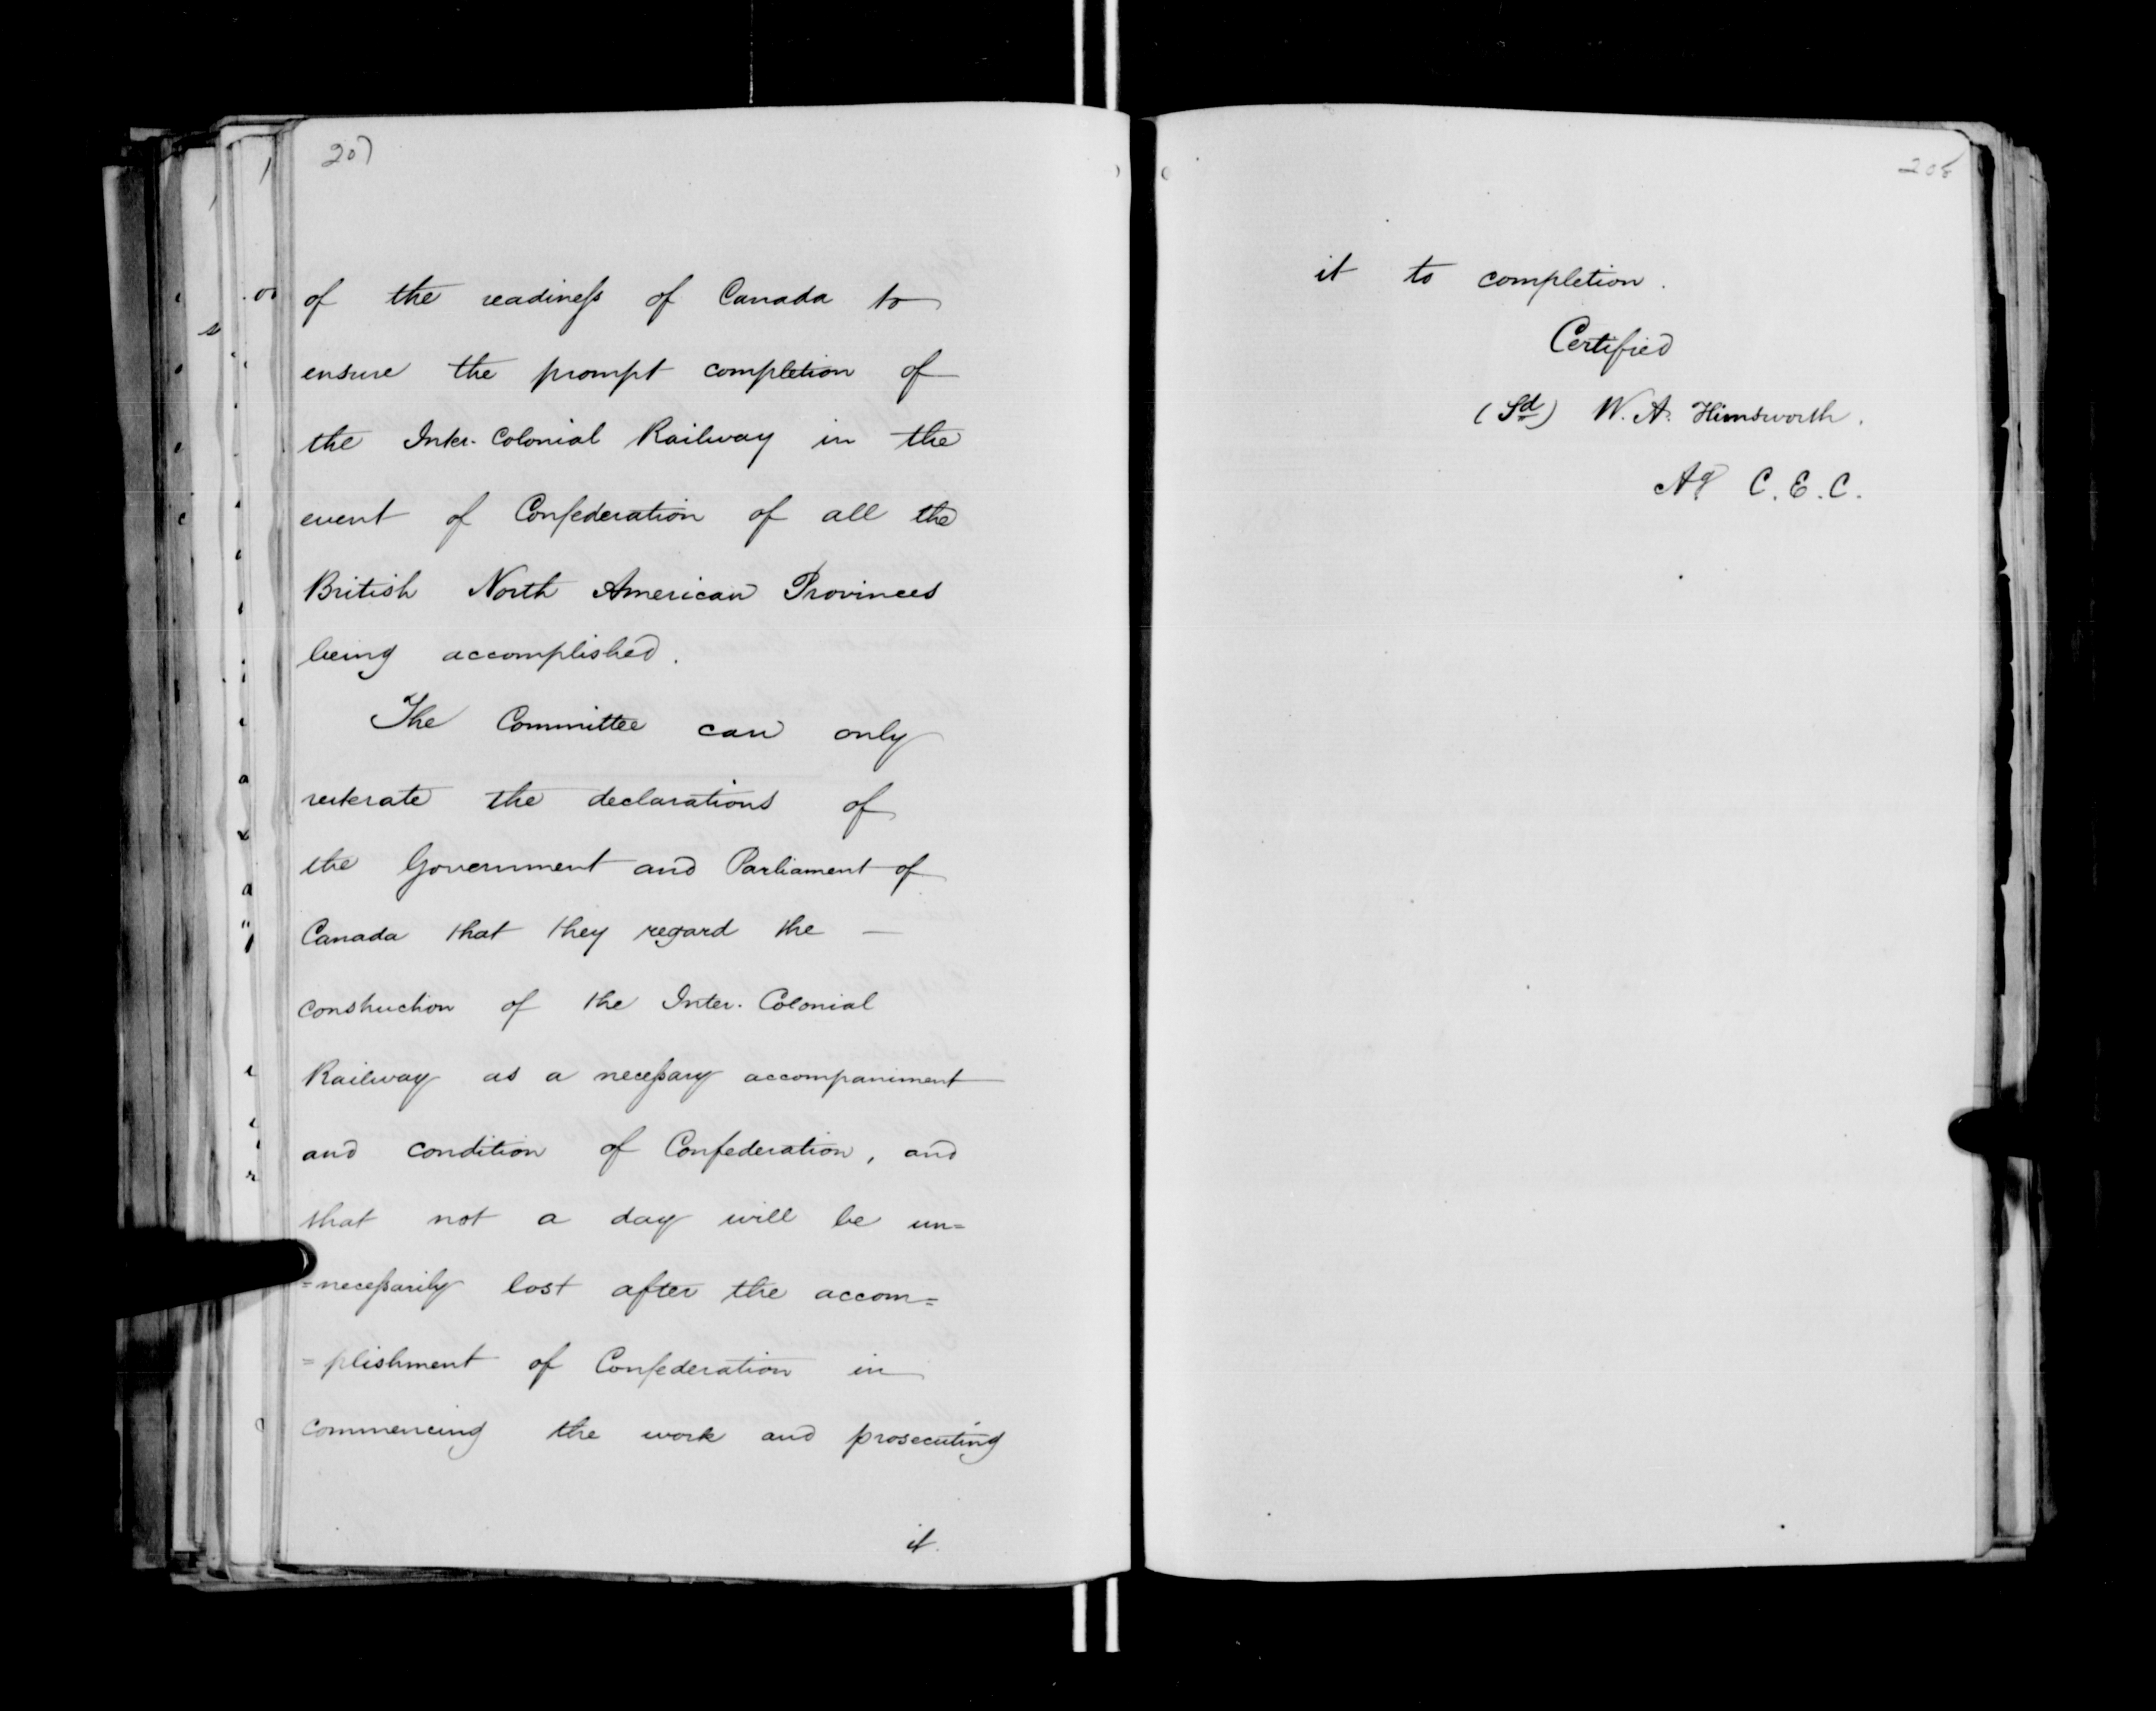 207
of the readiness of Canada to
ensure the prompt completion of
the Inter-Colonial Railway in the
event of Confederation of all the
British North American Provinces
being accomplished.
The Committee can only
reiterate the declarations of
the Government and Parliament of
Canada that they regard the —
construction of the Inter-Colonial
Railway as a necessary accompaniment
and condition of Confederation, and
that not a day will be un=
=necessarily lost after the accom=
=plishment of Confederation in
commencing the work and prosecuting
it.
208
it to completion.
Certified
(Sd) W. A. Himsworth.
Ag C. E. C.